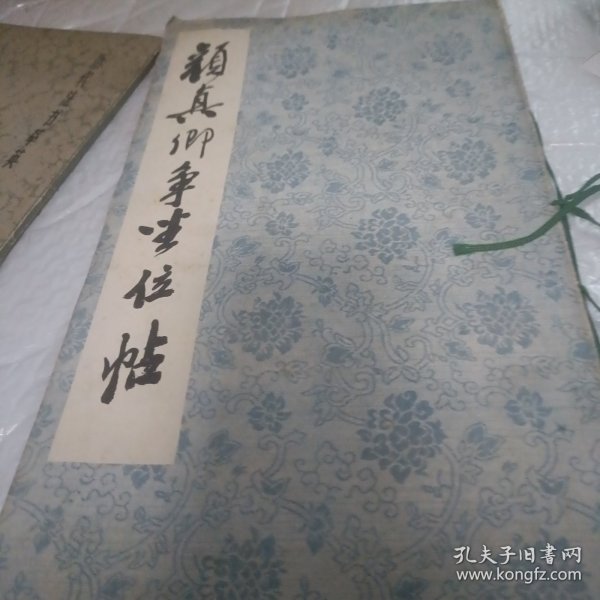 顏真卿爭坐位帖
孔夫子旧书网
www.kongfz.com